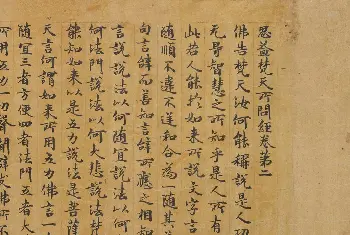 思益梵天所問經卷第二
佛告梵天汝何能稱說是人功
无㝵智慧之所知乎是人所有
此若人能於如來所說文字言
隨順不違不逆和合為一隨其義
句言辭而善知言辭所應之相知
言說說法以何隨宜說法以何
何法門說法以何大悲說法梵
能知如來以是五力說法是菩薩
天言何謂如來所用五力佛言一
隨宜三者方便四者法門五者大
所用五力一切聲聞辟支佛所不